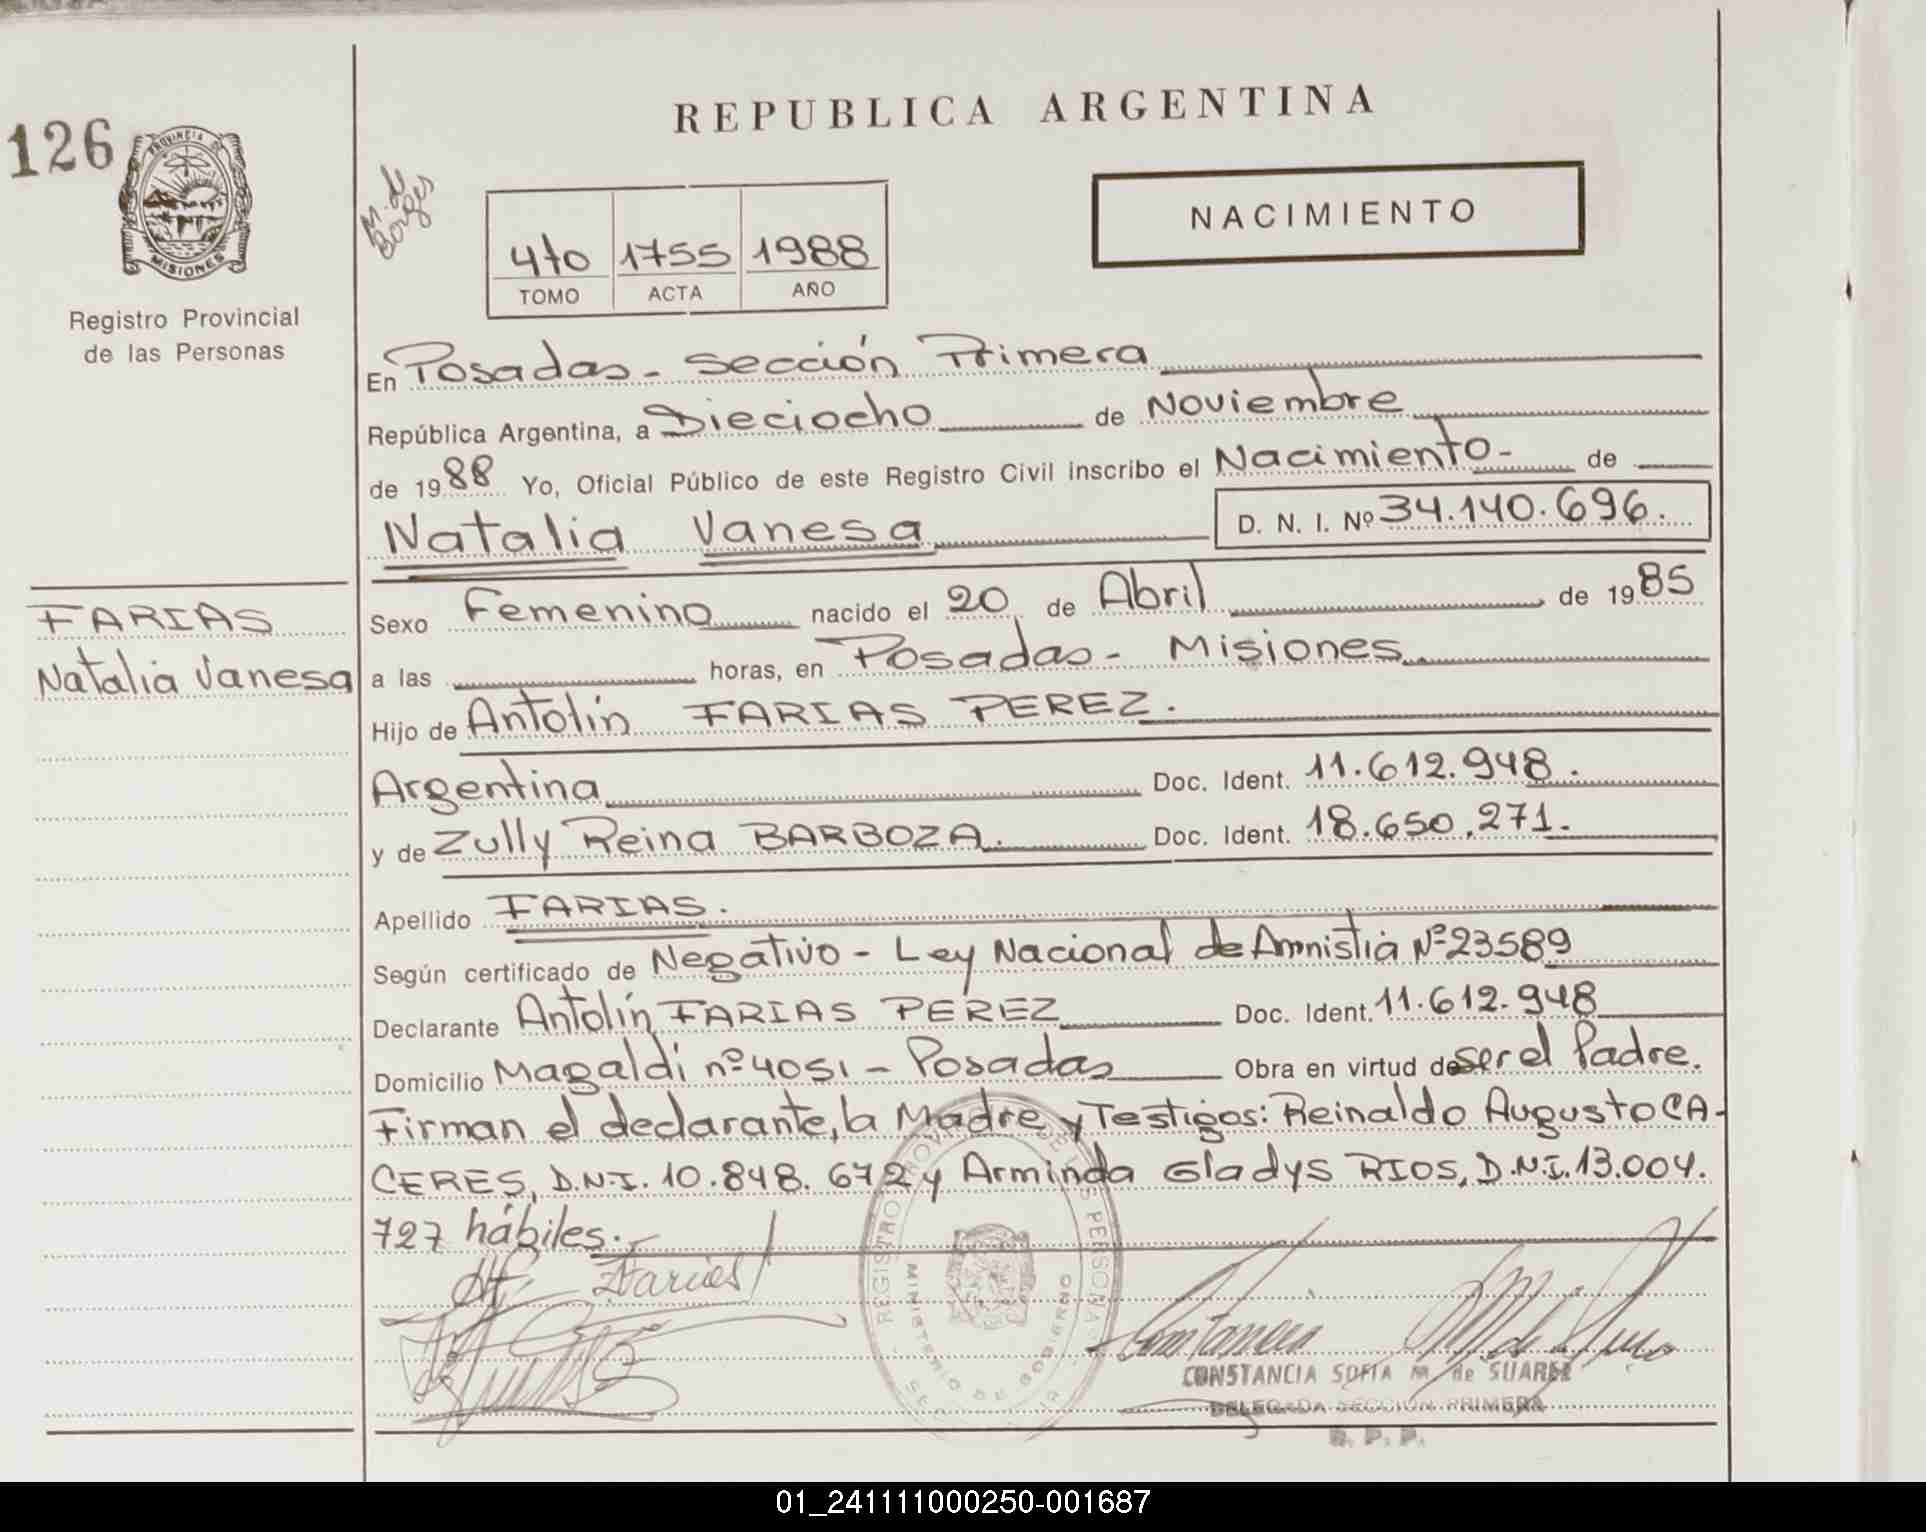 126
PROVINCIA DE
MISIONES
Registro Provincial
de las Personas
FARIAS
Natalia Vanesa
REPUBLICA ARGENTINA
M. de
Borges
4to 1755 1988
TOMO ACTA AÑO
NACIMIENTO
En Posadas - Sección Primera
República Argentina, a Dieciocho de Noviembre
de 1988 Yo, Oficial Público de este Registro Civil inscribo el Nacimiento - de
Natalia Vanesa D. N. I. Nº 34.140.696.
Sexo Femenino nacido el 20 de Abril de 1985
a las horas, en Posadas - Misiones
Hijo de Antolín FARIAS PEREZ.
Argentina Doc. Ident. 11.612.948.
y de Zully Reina BARBOZA. Doc. Ident. 18.650.271.
Apellido FARIAS.
Según certificado de Negativo - Ley Nacional de Amnistia Nº 23589
Declarante Antolín FARIAS PEREZ Doc. Ident. 11.612.948
Domicilio Magaldi nº 4051 - Posadas Obra en virtud de ser el Padre.
Firman el declarante, la Madre y Testigos: Reinaldo Augusto CA-
CERES, D.N.I. 10.848.672 y Arminda Gladys RIOS, D.N.I. 13.004.
727 hábiles.
Farias
REGISTRO PROVINCIAL DE LAS PERSONAS
MINISTERIO DE GOBIERNO
CONSTANCIA SOFIA M. de SUAREZ
DELEGADA SECCION PRIMERA
R. P. P.
01_241111000250-001687